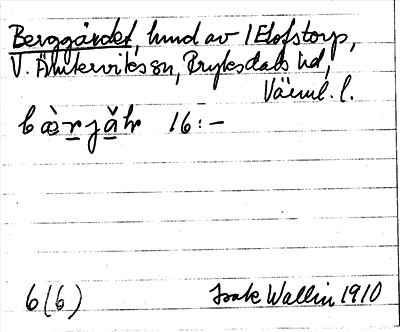 Berggärdet, hmd av 1 Elofstorp,
V. Ämterviks sn, Fryksdals hd,
Värml. l.
bæ̀rjǻħr 16:-
6(6) Isak Wallin 1910